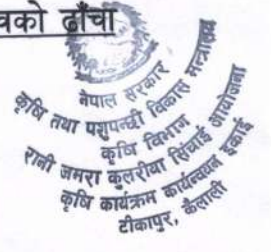 को ढाँचा
नेपाल सरकार
कृषि तथा पशुपन्छी विकास मन्त्रालय
कृषि विभाग
रानी जमरा कुलरीया सिंचाई आयोजना
कृषि कार्यक्रम कार्यन्वयन इकाई
टीकापुर, कैलाली